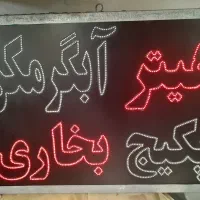 هیتر آبگرمکن
پکیج بخاری